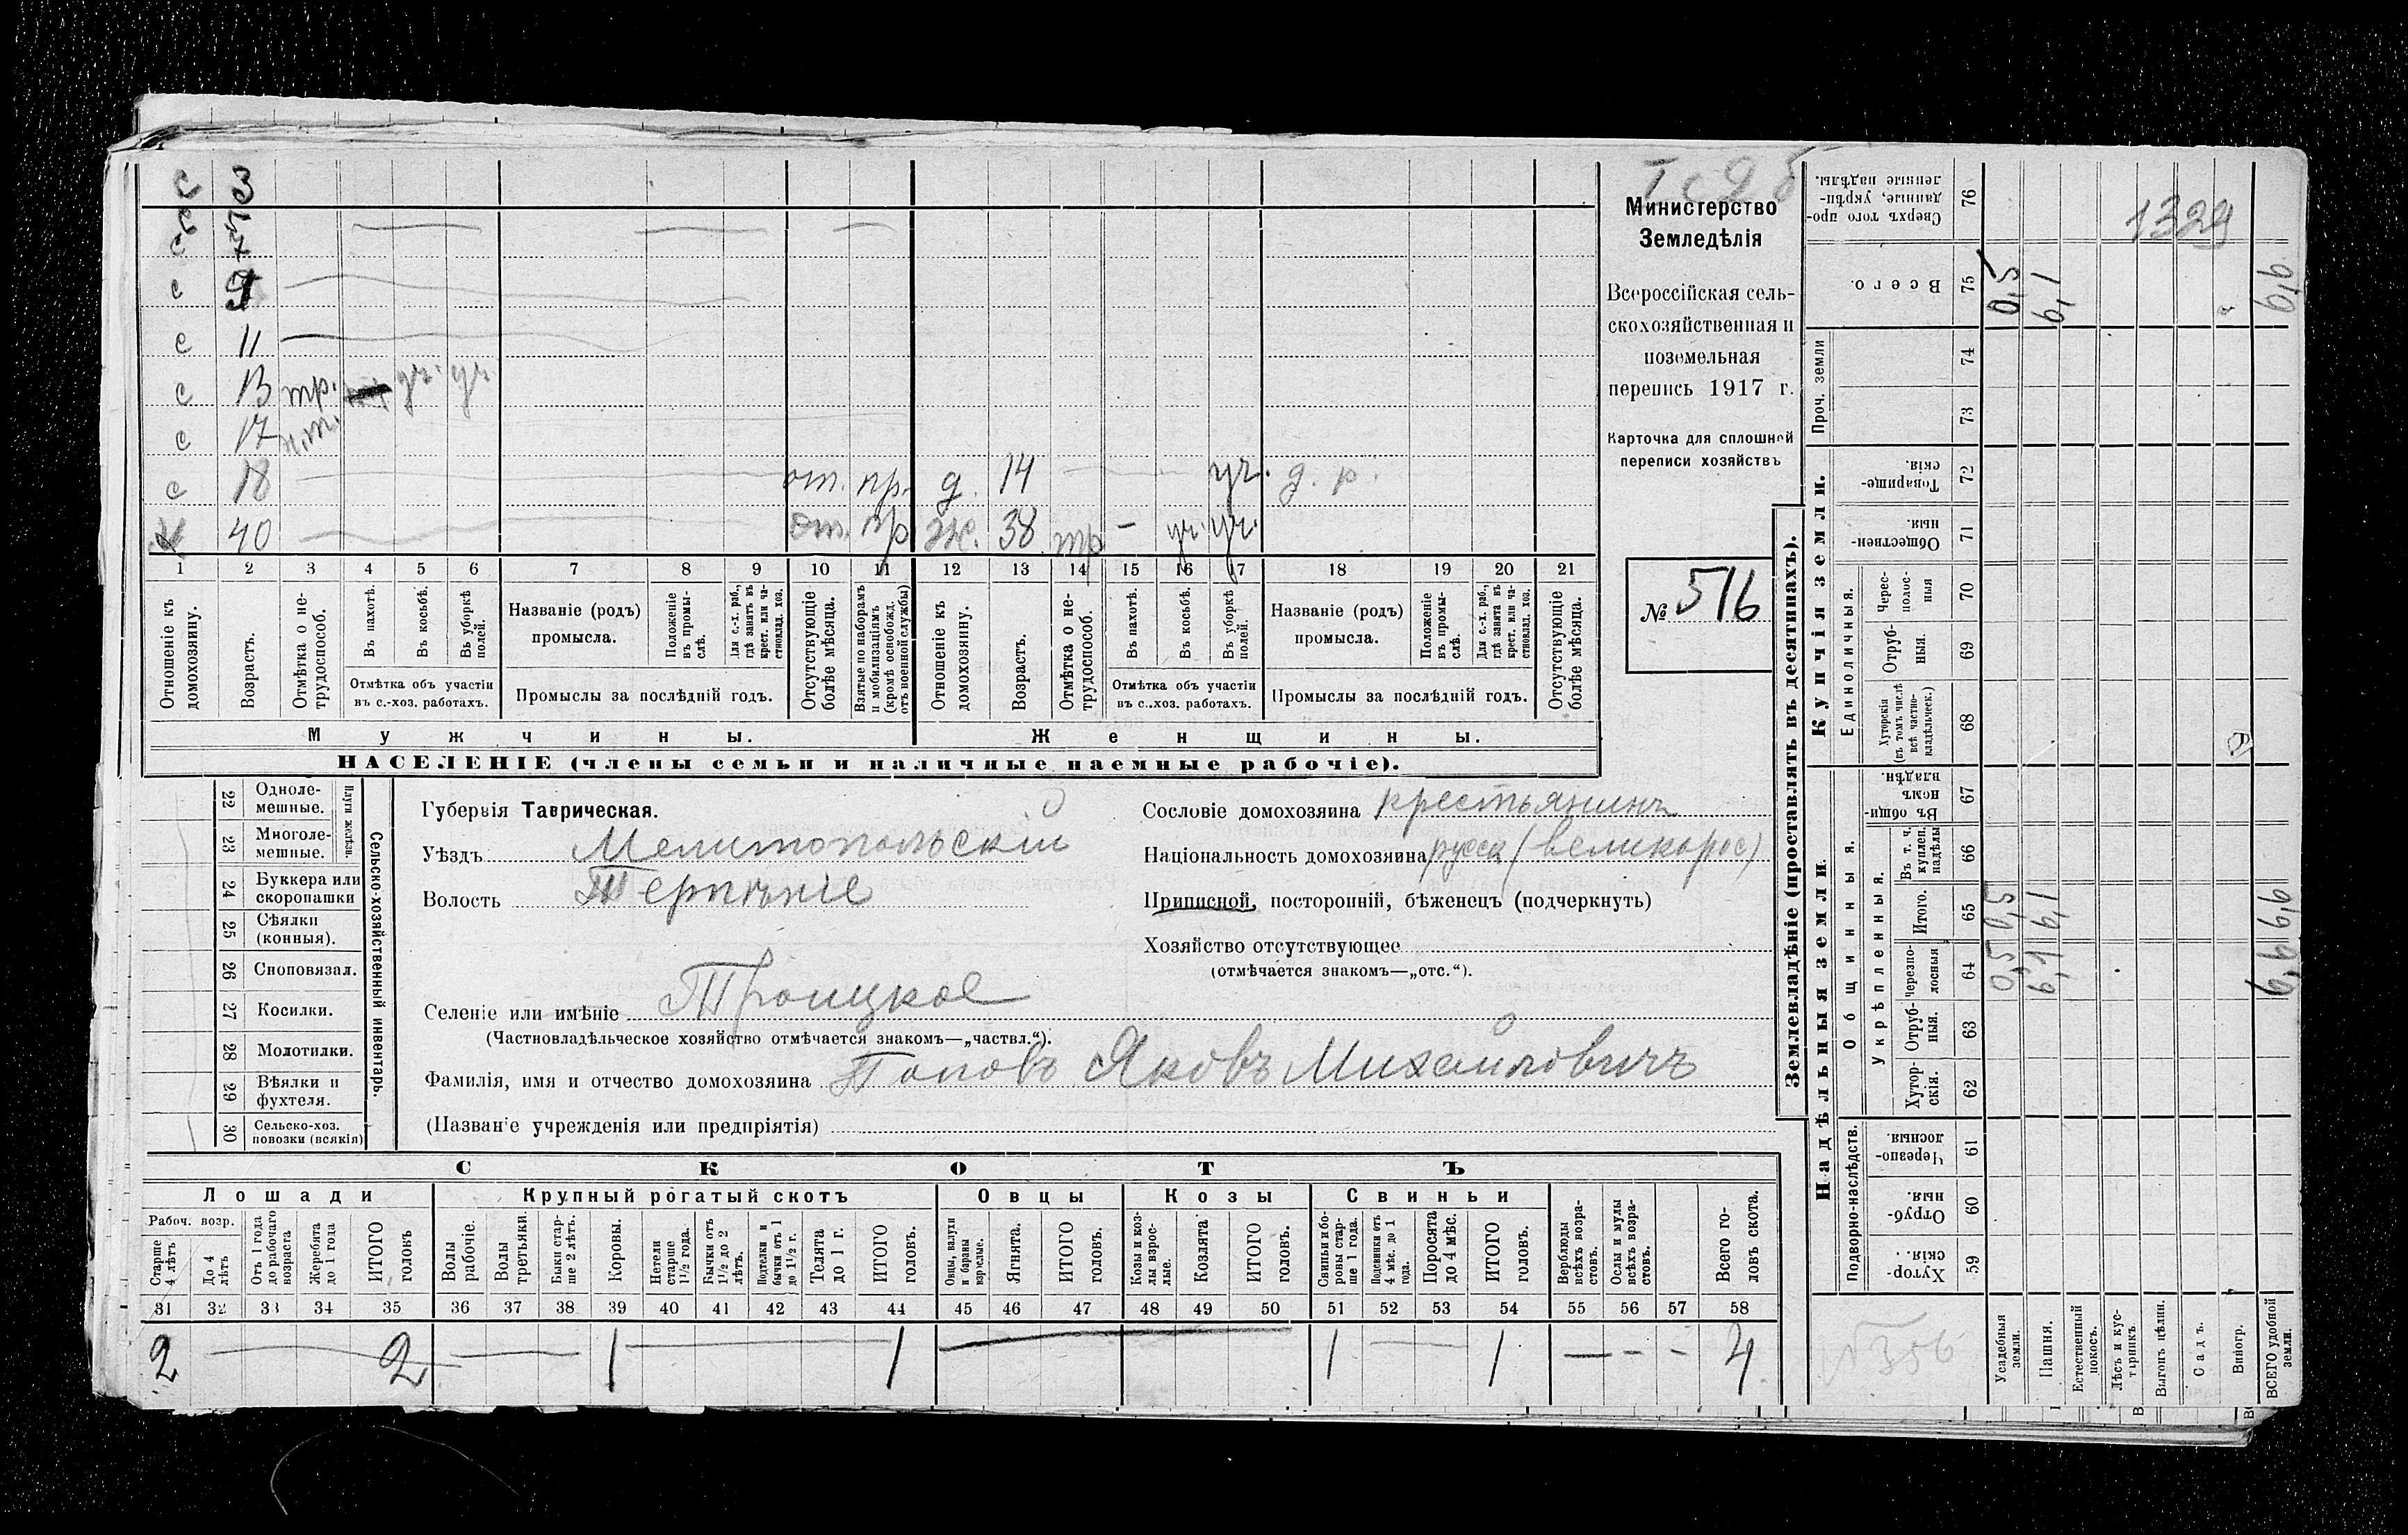 с 3
с 5
с 7
с 9
с 11
с 13 тр. уч. уч.
с 17 н.т.
с 18 от. пр. д. 14 уч. д. р.
х 40 от. пр ж. 38 тр – уч. уч.
1 2 3 4 5 6 7 8 9 10 11 12 13 14 15 16 17 18 19 20 21
Отношеніе къ домохозяину.
Возрастъ.
Отмѣтка о нетрудоспособ.
Въ пахотѣ.
Въ косьбѣ.
Въ уборкѣ полей.
Отмѣтка объ участіи въ с.-хоз. работахъ.
Названіе (родъ) промысла.
Положеніе въ промыслѣ.
Для с.-х. раб., гдѣ занятъ въ крест. или частновлад. хоз.
Промыслы за послѣдній годъ.
Отсутствующіе болѣе мѣсяца.
Взятые по наборамъ и мобилизаціямъ (кромѣ освобожд. отъ военной службы)
Отношеніе къ домохозяину.
Возрастъ.
Отмѣтка о нетрудоспособ.
Въ пахотѣ.
Въ косьбѣ.
Въ уборкѣ полей.
Отмѣтка объ участіи въ с.-хоз. работахъ.
Названіе (родъ) промысла.
Положеніе въ промыслѣ.
Для с.-х. раб., гдѣ занята въ крест. или частновлад. хоз.
Промыслы за послѣдній годъ.
Отсутствующіе болѣе мѣсяца.
Мужчины. Женщины.
НАСЕЛЕНІЕ (члены семьи и наличные наемные рабочіе).
Министерство
Земледѣлія
Всероссійская сель-
скохозяйственная и
поземельная
перепись 1917 г.
Карточка для сплошной
переписи хозяйствъ
№ 516
22 Однолемешные.
23 Многолемешные.
Плуги желѣзн.
24 Буккера или скоропашки
25 Сѣялки (конныя).
26 Сноповязал.
27 Косилки.
28 Молотилки.
29 Вѣялки и фухтеля.
30 Сельско-хоз. повозки (всякія)
Сельско-хозяйственный инвентарь.
Губернія Таврическая.
Уѣздъ Мелитопольскій
Волость Терпѣніе
Селеніе или имѣніе Троицкое
(Частновладѣльческое хозяйство отмѣчается знакомъ—„частвл.“).
Фамилія, имя и отчество домохозяина Поповъ Яковъ Михайловичъ
(Названіе учрежденія или предпріятія)
Сословіе домохозяина крестьянинъ
Національность домохозяина русск (великорос)
Приписной, посторонній, бѣженецъ (подчеркнуть)
Хозяйство отсутствующее
(отмѣчается знакомъ—„отс.“).
СКОТЪ
Лошади Крупный рогатый скотъ Овцы Козы Свиньи
Рабоч. возр.
Старше 4 лѣтъ
До 4 лѣтъ
Отъ 1 года до рабочаго возраста
Жеребята до 1 года
ИТОГО головъ
Волы рабочіе.
Волы третьяки.
Быки старше 2 лѣтъ.
Коровы.
Нетели старше 1½ года.
Бычки отъ 1½ до 2 лѣтъ.
Подтелки и бычки отъ 1 до 1½ г.
Телята до 1 г.
ИТОГО головъ.
Овцы, валухи и бараны взрослые.
Ягнята.
ИТОГО головъ.
Козы и козлы взрослые.
Козлята
ИТОГО головъ.
Свиньи и боровы старше 1 года.
Подсвинки отъ 4 мѣс. до 1 года.
Поросята до 4 мѣс.
ИТОГО головъ.
Верблюды всѣхъ возрастовъ.
Ослы и мулы всѣхъ возрастовъ.
Всего головъ скота.
31 32 33 34 35 36 37 38 39 40 41 42 43 44 45 46 47 48 49 50 51 52 53 54 55 56 57 58
2 2 1 1 1 1 — - - 4
Землевладѣніе (проставлять въ десятинахъ).
Купчія земли.
Надѣльныя земли.
Сверхъ того проданные, укрѣпленные надѣлы. 76
1329
Всего. 75 0,5 6,1 6,6
Проч. земли 74 73
Товарищескія. 72
Общественныя. 71
Единоличныя.
Чересполосныя 70
Отрубныя. 69
Хуторскія (въ томъ числѣ всѣ частновладѣльческ.) 68
Общинныя.
Въ общинномъ владѣн. 67
Укрѣпленныя.
Въ т. ч. куплен. надѣлы 66
Итого. 65 0,5 6,1 6,6
Черезполосныя 64 0,5 6,1 6,6
Отрубныя. 63
Хуторскія. 62
Подворно-наслѣдств.
Черезполосныя. 61
Отрубныя. 60
Хуторскія. 59
Усадебныя земли.
Пашня.
Естественный покосъ.
Лѣсъ и кустарникъ
Выгонъ цѣлин.
Садъ.
Виногр.
ВСЕГО удобной земли.